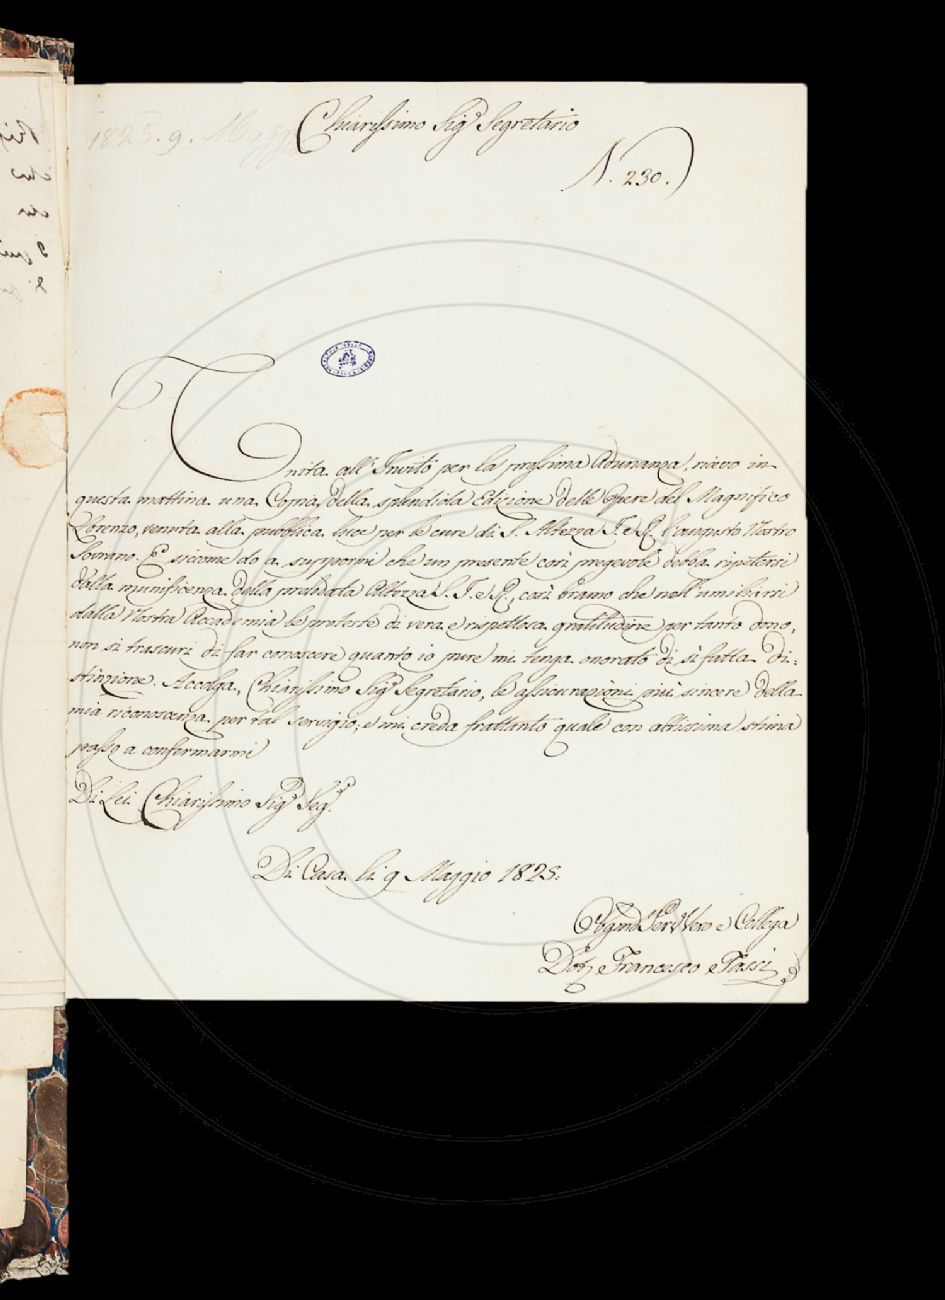 1825. 9. Maggio
Chiarissimo Sig.r Segretario
N. 230.
Unita all'Invito per la prossima Adunanza, ricevo in
questa mattina una Copia della splendida Edizione delle Opere del Magnifico
Lorenzo, venuta alla pubblica luce per le cure di S. Altezza I. e R. l'augusto Nostro
Sovrano. E siccome do a suppormi che un presente così pregevole debba ripetersi
dalla munificenza della prelodata Altezza S. I. e R., così bramo che nell'umiliarsi
dalla Nostra Accademia le proteste di vera e rispettosa gratitudine per tanto dono,
non si trascuri di far conoscere quanto io pure mi tenga onorato di sì fatta Di=
stinzione. Accolga, Chiarissimo Sig.r Segretario, le assicurazioni più sincere della
mia riconoscenza per tal servigio; e mi creda frattanto quale con altissima stima
passo a confermarmi
Di Lei Chiarissimo Sig.r Seg.r
Di Casa li 9 Maggio 1825.
Obbgmo Serv. Vero e Collega
Dott. Francesco Tassi